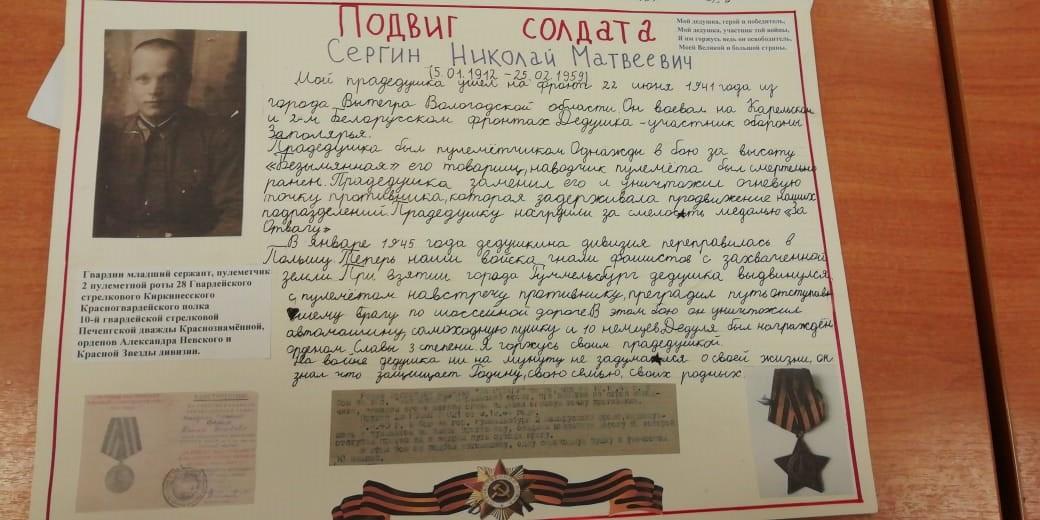 Подвиг солдата
Мой дедушка, герой и победитель,
Мой дедушка, участник той войны,
Я им горжусь ведь он освободитель,
Моей Великой и большой страны.
Сергин Николай Матвеевич
(5.01.1912 - 25.02.1959)
Мой прадедушка ушел на фронт 22 июня 1941 года из
города Вытегра Вологодской области. Он воевал на Карельском
и 2-м Белорусском фронтах Дедушка - участник обороны
Заполярья.
Прадедушка был пулемётчиком Однажды в бою за высоту
«Безымянная» его товарищ, наводчик пулемёта был смертельно
ранен. Прадедушка заменил его и уничтожил огневую
точку противника, которая задерживала продвижение наших
подразделений. Прадедушку нагрдили за смелость медалью «За
Отвагу»
В январе 1945 года дедушкина дивизия переправилась в
Польшу. Теперь наши войска гнали фашистов с захваченной
земли. При взятии города Гуммельсбург дедушка выдвинулся
с пулемётом навстречу противнику, преградил путь отступав
шему врагу по шоссейной дороге. В этом бою он уничтожил
автомашину, самоходную пушку и 10 немцев. Дедуля был награждён
орденом Славы 3 степени Я горжусь своим прадедушкой.
На войне дедушка ни на мунуту не задумался о своей жизни, он
знал что защищает Родину, свою семью, своих родных.
Гвардии младший сержант, пулеметчик
2 пулеметной роты 28 Гвардейского
стрелкового Киркинесского
Красногвардейского полка
10-й гвардейской стрелковой
Печенгской дважды Краснознамённой,
орденов Александра Невского и
Красной Звезды дивизии.